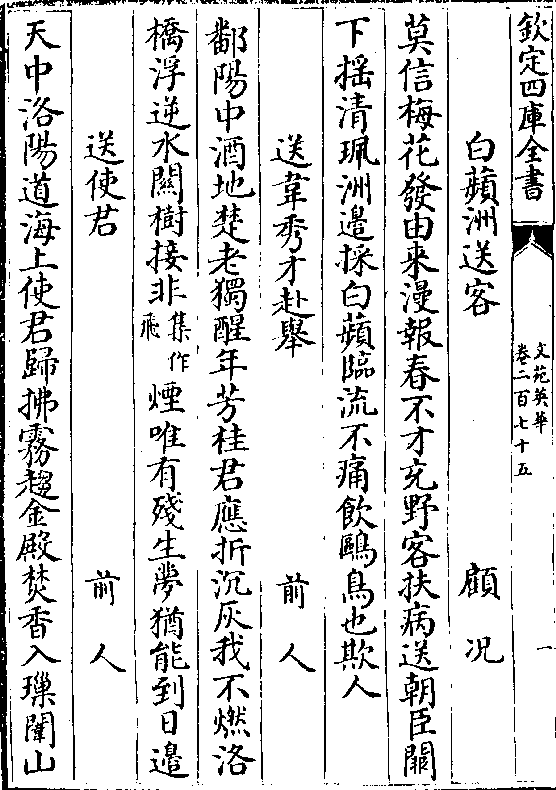 欽定四庫全書
文苑英華
卷二百七十五
一
白蘋洲送客 顧況
莫信梅花發由来漫報春不才充野客扶病送朝臣關
下揺清珮洲邊採白蘋臨流不痛飲鷗鳥也欺人
送韋秀才赴舉 前人
鄱陽中酒地楚老獨醒年芳桂君應折沉灰我不燃洛
橋浮逆水關樹接非集作飛煙唯有殘生夢猶能到日邊
送使君 前人
天中洛陽道海上使君歸拂霧趨金殿焚香入瑣闈山